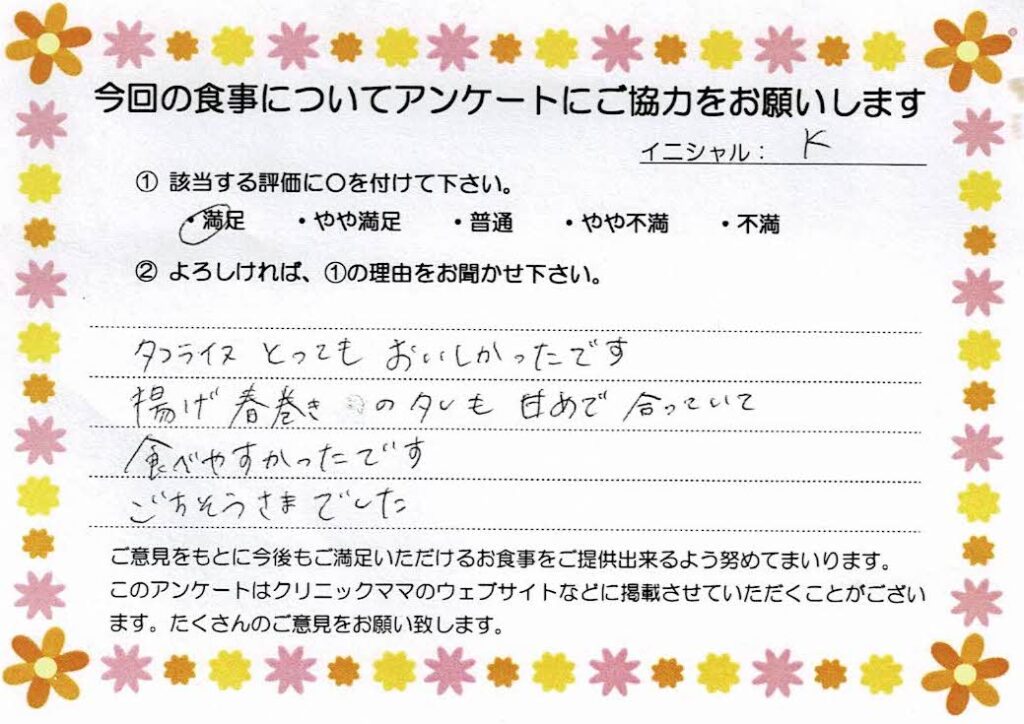 今回の食事についてアンケートにご協力をお願いします
イニシャル： K
① 該当する評価に〇を付けて下さい。
・満足 ・やや満足 ・普通 ・やや不満 ・不満
② よろしければ、①の理由をお聞かせ下さい。
タコライス とっても おいしかったです
揚げ春巻き のタレも 甘めで 合っていて
食べやすかったです
ごちそうさまでした
ご意見をもとに今後もご満足いただけるお食事をご提供出来るよう努めてまいります。
このアンケートはクリニックママのウェブサイトなどに掲載させていただくことがござい
ます。たくさんのご意見をお願い致します。